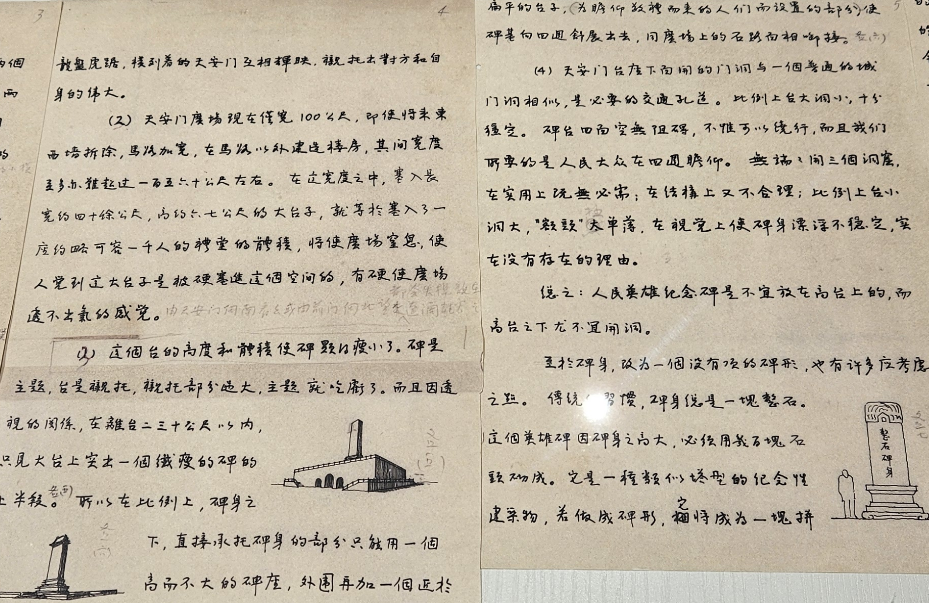 3
4
龍盤虎踞，模到着的天安门互相輝映，襯托出對方和自
身的伟大。
(2) 天安门廣場現在僅寬100公尺，即使将来東
西墙拆除，馬路加寬，在馬路以外建造楼房，其间寬度
至多亦难超过一百五六十公尺左右。在这寬度之中，塞入長
寬约四十馀公尺，高约六七公尺的大台子，就等於塞入了一
座约略可容一千人的禮堂的體積，将使廣場窒息，使
人觉到这大台子是被硬塞進這個空间的，有硬使廣場
透不出氣的感觉。
(3) 這個台的高度和體積使碑顯得瘦小了。碑是
主題，台是襯托，襯托部分过大，主題就吃虧了。而且因透
視的関係，在離台二三十公尺以内，
只見大台上突出一個纖瘦的碑的
上半段。所以在比例上，碑身之
下，直接承托碑身的部分只能用一個
高而不大的碑座，外围再加一個近於
5
扁平的台子，(为瞻仰致禮而来的人们而設置的部分)使
碑基向四週舒展出去，同廣場上的石路面相啣接。
(4) 天安门台座下面開的门洞与一個普通的城
门洞相似，是必要的交通孔道。比例上台大洞小，十分
稳定。碑台四面空無阻碍，不惟可以绕行，而且我们
所要的是人民大众在四週瞻仰。無端端開三個洞窟，
在实用上既無必需；在结構上又不合理；比例上台小
洞大，"数頭"太单薄，在視觉上使碑身漂浮不稳定，实
在没有存在的理由。
總之：人民英雄纪念碑是不宜放在高台上的，而
高台之下尤不宜開洞。
至於碑身，改为一個没有顶的碑形，也有许多应考慮
之點。傳統習慣，碑身總是一塊整石。
這個英雄碑因碑身之高大，必须用数百塊石
頭砌成。它是一種類似塔型的纪念性
建築物，若做成碑形，它将成为一塊拼
整石碑身